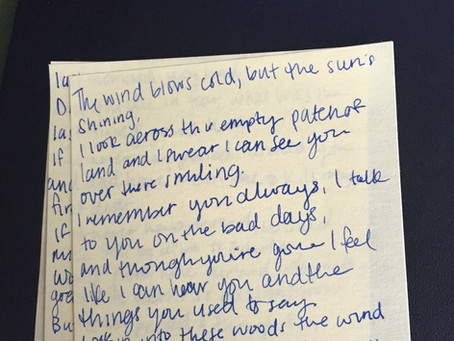 The wind blows cold, but the sun's
shining.
I look across this empty patch of
land and I swear I can see you
over there smiling.
I remember you always, I talk
to you on the bad days,
and though you're gone I feel
like I can hear you and the
things you used to say
into these woods the wind